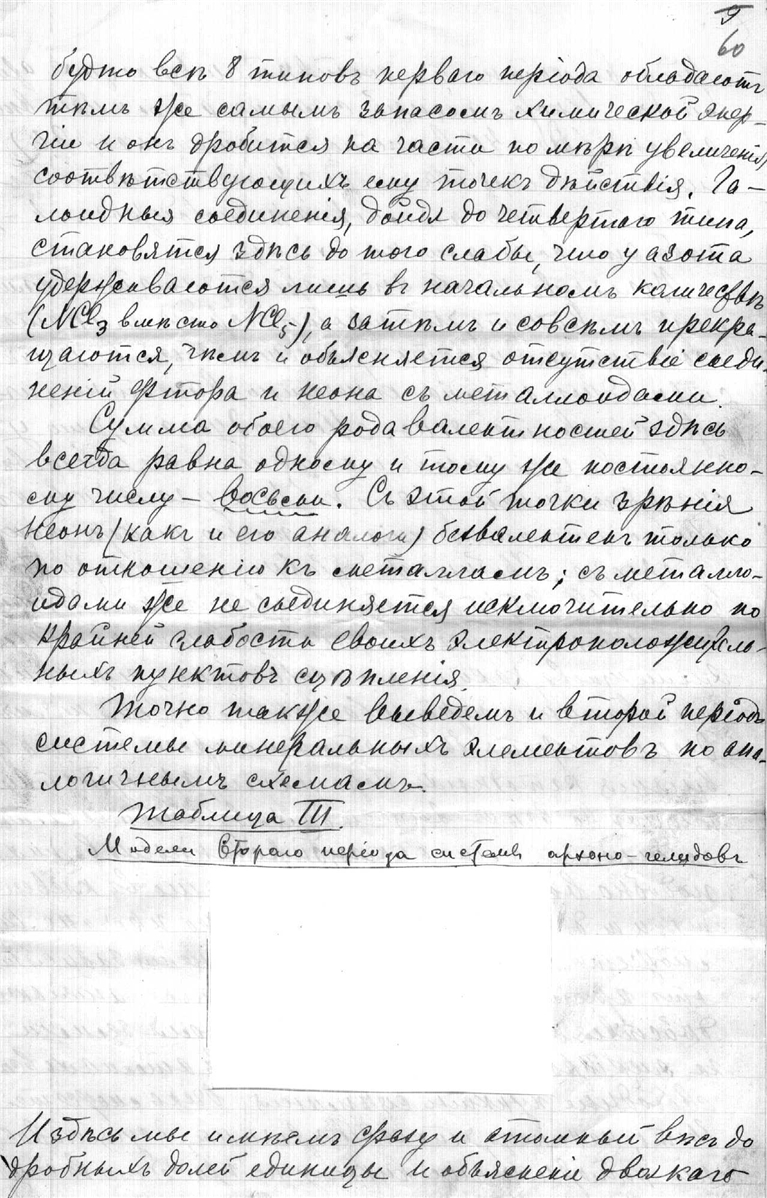 9
60
будто всѣ 8 типовъ перваго періода обладаютъ
тѣмъ же самымъ запасомъ химической энер-
гіи и онъ дробится на части по мѣрѣ увеличенія
соотвѣтствующихъ ему точекъ дѣйствія. Га-
лоидныя соединенія, дойдя до четвертаго типа,
становятся здѣсь до того слабы, что у азота
удерживаются лишь въ начальномъ количествѣ
(NCl3 вмѣсто NCl5), а затѣмъ и совсѣмъ прекра-
щаются, чѣмъ и объясняется отсутствіе соеди-
неній фтора и неона съ металлоидами.
Сумма обоего рода валентностей здѣсь
всегда равна одному и тому же постоянно-
му числу – восьми. Съ этой точки зрѣнія
неонъ (какъ и его аналоги) безвалентенъ только
по отношенію къ металламъ; съ металло-
идами же не соединяется исключительно по
крайней слабости своихъ электроположитель-
ныхъ пунктовъ сцѣпленія.
Точно также выведемъ и второй періодъ
системы минеральныхъ элементовъ по ана-
логичнымъ схемамъ.
Таблица III.
Модели второго періода системы архоно-гелидовъ
И здѣсь мы имѣемъ сразу и атомный вѣсъ до
дробныхъ долей единицы и объясненіе двоякаго